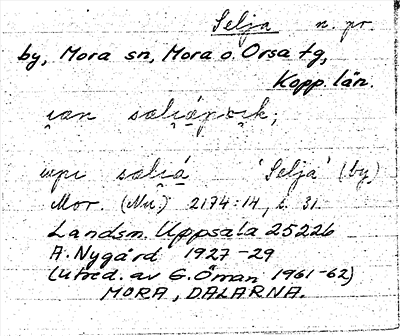 Selja n. pr.
by, Mora sn, Mora o. Orsa tg,
Kopp. län.
'Selja' (by)
Mor. 2174:14, s. 31.
Landsm. Uppsala 25226
A. Nygård 1927-29
(utred. av G. Örnan 1961-62)
MORA, DALARNA.